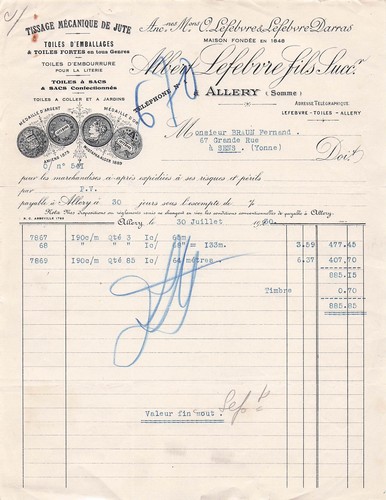 TISSAGE MÉCANIQUE DE JUTE
TOILES D'EMBALLAGES
& TOILES FORTES en tous Genres
TOILES D'EMBOURRURE
POUR LA LITERIE
TOILES à SACS
& SACS Confectionnés
TOILES A COLLER ET A JARDINS
MÉDAILLE D'ARGENT
MÉDAILLE D'OR
AMIENS 1875
Anc.nes Mons C. Lefebvre & Lefebvre-Darras
MAISON FONDÉE en 1846
Albert Lefebvre fils Succr.
à ALLERY (Somme)
TÉLÉPHONE N°
ADRESSE TÉLÉGRAPHIQUE
LEFEBVRE-TOILES-ALLERY
Monsieur BRAUN Fernand.
67 Grande Rue
à SENS (Yonne)
Doit
C/ n° 541
pour les marchandises ci-après expédiées à ses risques et périls
par P.V.
payable à Allery à 30 jours sous l'escompte de %
Nota: Nos dispositions ou règlements visés ne changent en rien les conditions conventionnelles de payable à Allery.
R. C. ABBEVILLE
Allery, le 30 Juillet 1930
7867 190c/m Qté 3 Ic/ 65m.
68 " " " Ic/ 68" = 133m. 3.59 477.45
7869 190c/m Qté 85 Ic/ 64 mètres. 6.37 407,70
885.15
Timbre 0.70
885.85
Valeur fin aout. Sept